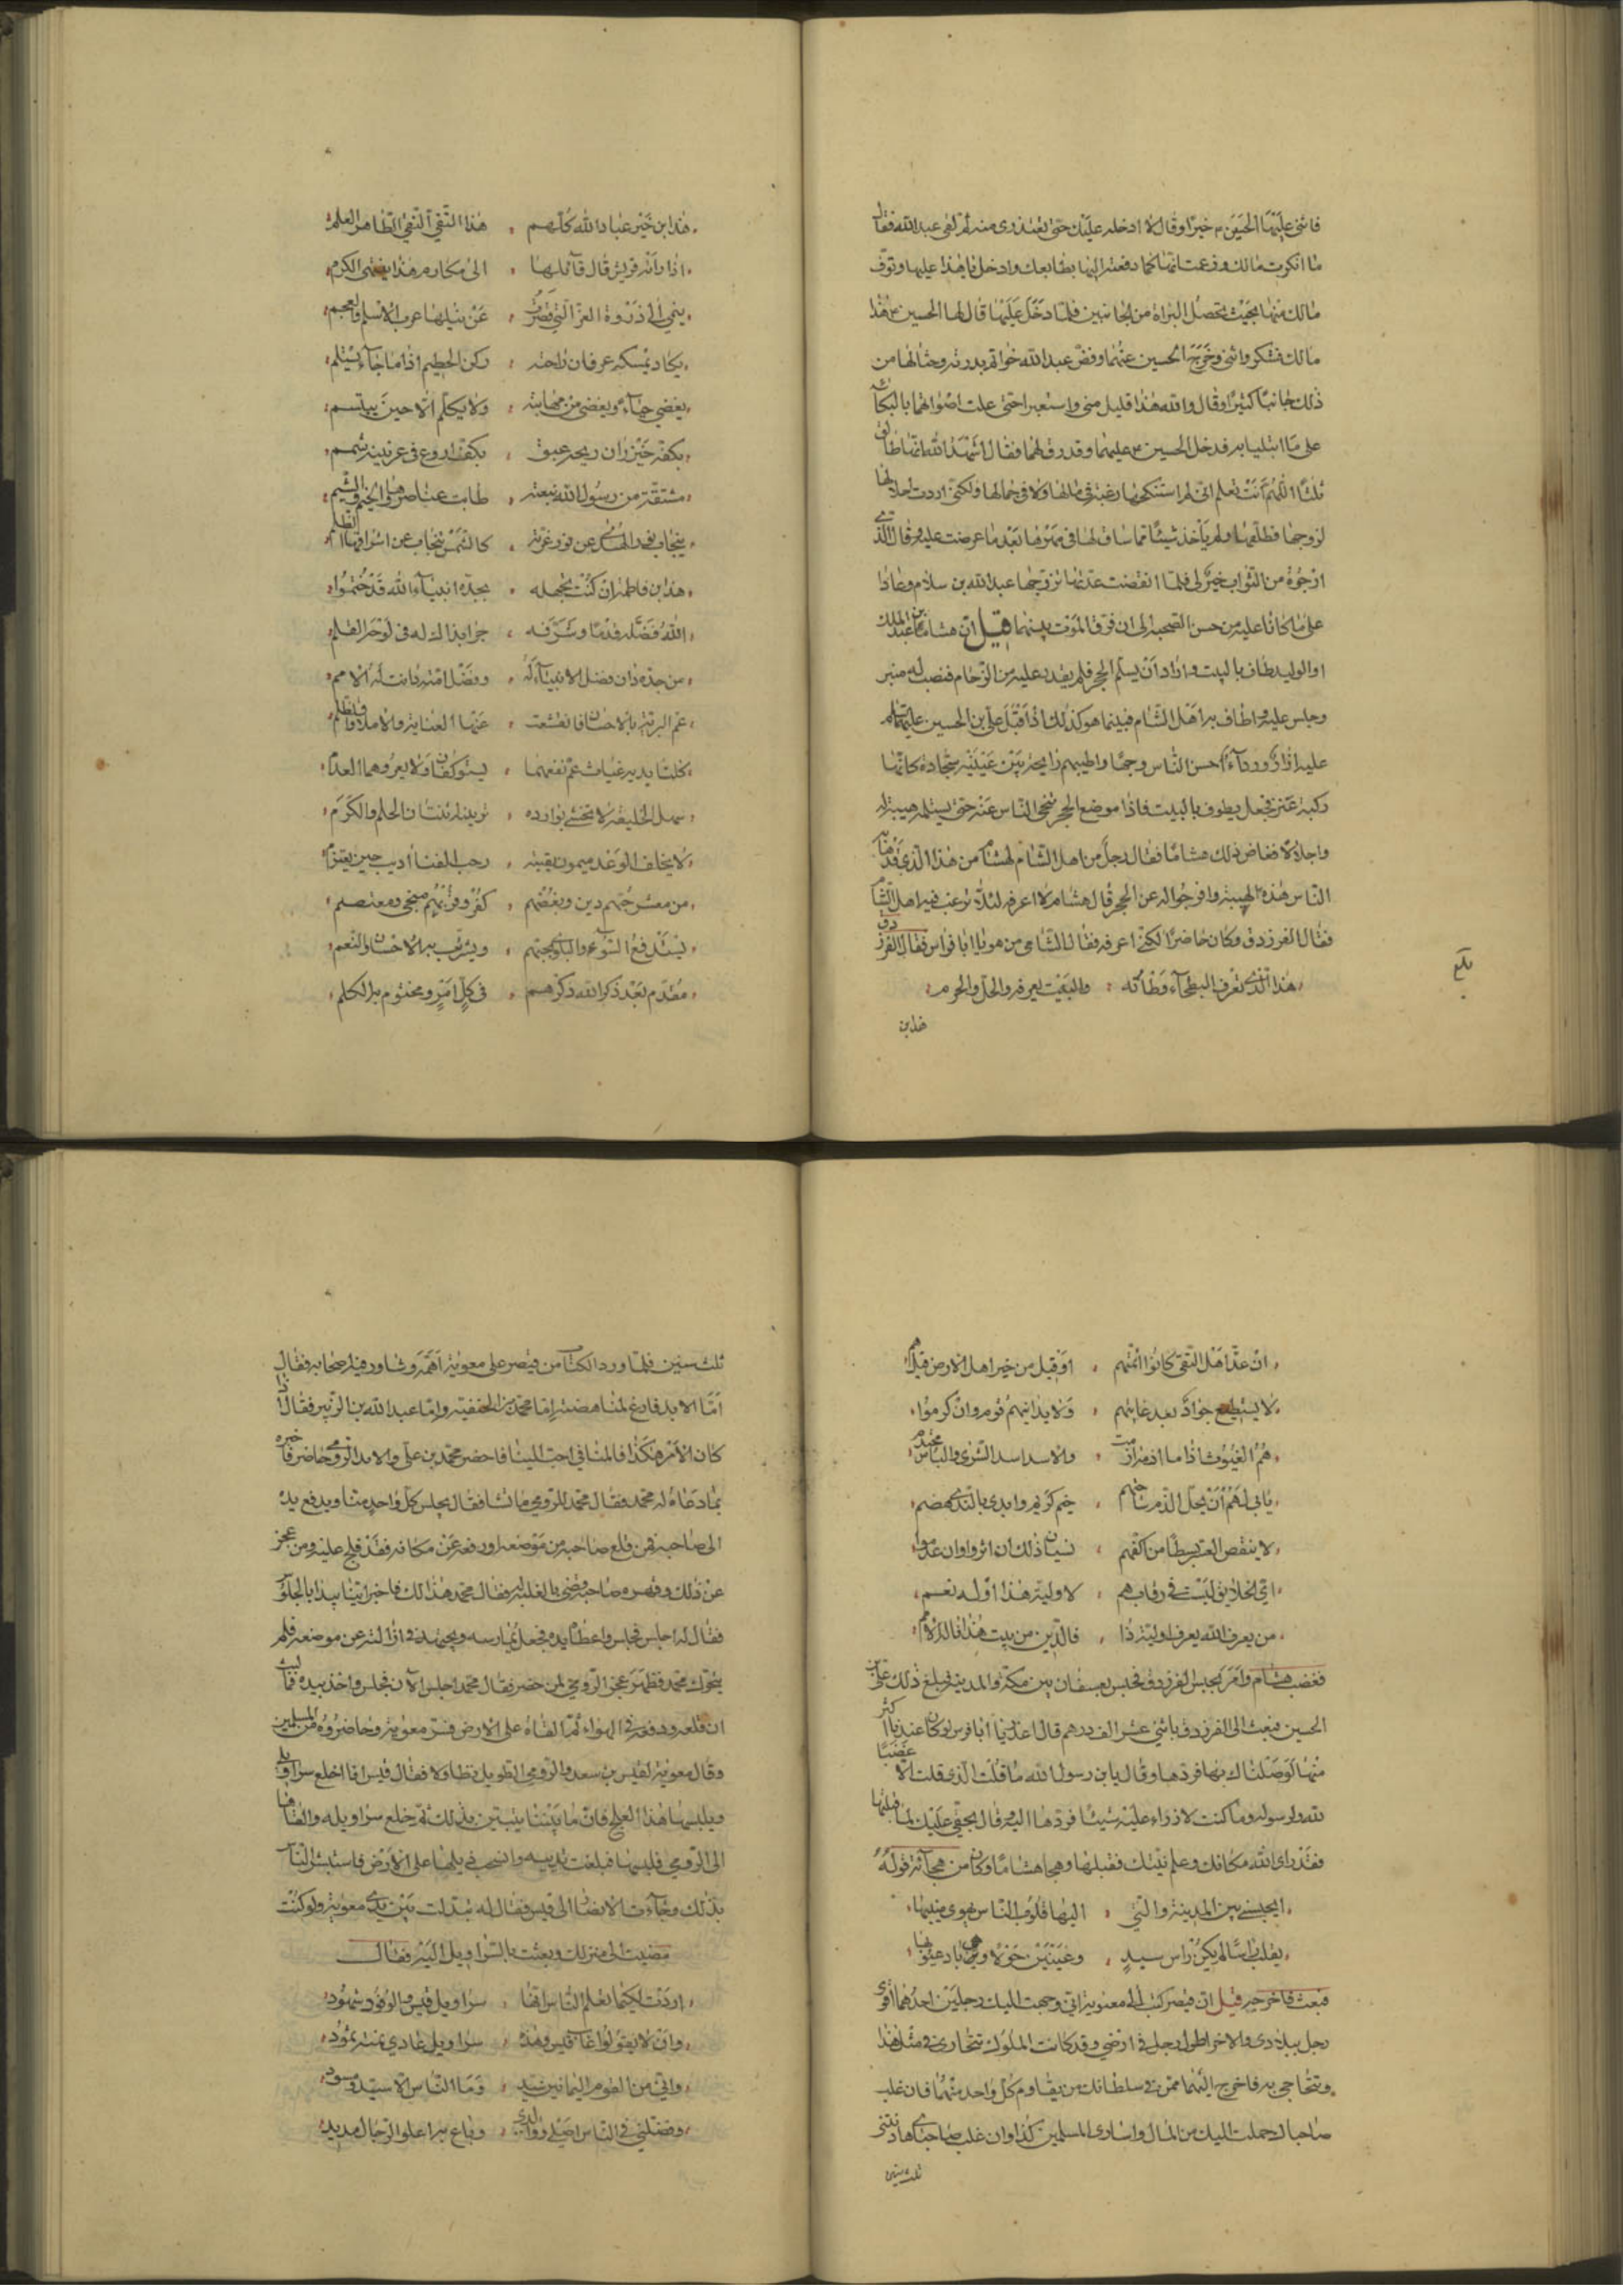 فاثنى عليها الحسين خيرا وقال لا ادخله عليك حتى تعتذرى منه ثم لقى عبد الله فقال
ما انكرت مالك وزعمت انها كما دفعته اليها بطابعك وادخل يا هذا عليها وتوف
مالك منها بحيث تحصل البراة من الجانبين فلما دخل عليها قال لها الحسين هذا
مالك فشكر واثنى وخرج الحسين عنهما وفض عبد الله خواتم بدرته وحثا لها من
ذلك جانبا كثيرا وقال والله هذا قليل منى واستعبرا حتى علت اصواتهما بالبكاء
على ما ابتليا به فدخل الحسين عليهما وقد رق لهما فقال اشهد الله انها طالق
ثلثا اللهم انت تعلم انى لم استنكحها رغبة فى مالها ولا فى جمالها ولكنى اردت احلالها
لزوجها فطلقها ولم يأخذ شيئا مما ساق لها فى مهرها بعد ما عرضت عليه وقال الذى
ارجوه من الثواب خير لى فلما انقضت عدتها تزوجها عبد الله بن سلام وعادا
على ما كانا عليه من حسن الصحبة الى ان فرق الموت بينهما قيل ان هشام بن عبد الملك
او الوليد طاف بالبيت واراد أن يستلم الحجر فلم يقدر عليه من الزحام فنصب له منبر
وجلس عليه واطاف به اهل الشام فبينما هو كذلك اذ أقبل على بن الحسين عليهما السلام
عليه ازار ورداء أحسن الناس وجها واطيبهم رايحة بين عينيه سجادة كانها
ركبة عنز فجعل يطوف بالبيت فاذا موضع الحجر تنحى الناس عنه حتى يستلمه هيبة له
واجلالا فغاض ذلك هشاما فقال رجل من اهل الشام لهشام من هذا الذى قد هابه
الناس هذه الهيبة وافرجوا له عن الحجر قال هشام لا اعرفه لئلا ترغب فيه اهل الشام
فقال الفرزدق وكان حاضرا لكنى اعرفه فقال الشامى من هو يا ابا فراس فقال الفرزدق
هذا الذى تعرف البطحآء وطأته والبيت يعرفه والحل والحرم
هذا بن
بلغ
هذا ابن خير عباد الله كلهم هذا التقى النقى الطاهر العلم
اذا رأته قريش قال قآئلها الى مكارم هذا ينتهى الكرم
ينمى الى ذروة العز التى قصرت عن نيلها عرب الاسلم والعجم
يكاد يمسكه عرفان راحته ركن الحطيم اذا ما جآء يستلم
يغضى حيآء ويغضى من مهابته ولا يكلم الا حين يبتسم
بكفه خيزران ريحه عبق بكف اروع فى عرنينه شمم
مشتقة من رسول الله نبعته طابت عناصرها والخيم والشيم
ينجاب نور الهدى عن نور غرته كالشمس تنجاب عن اشراقها الظلم
هذا ابن فاطمة ان كنت تجهله بجده انبيآء الله قد ختموا
الله فضله قدما وشرفه جرا بذا له فى لوحه القلم
من جده دان فضل الانبيآء له وفضل امته دانت له الامم
عم البرية بالاحسان فانقشعت عنها العناية والاملاق والظلم
كلتا يديه غياث عم نفعهما يستوكفان ولا يعروهما العدم
سهل الخليقة لا تخشى بوادره تزينه اثنتان الحلم والكرم
لا يخلف الوعد ميمون نقيبته رحب الفنا أديب حين يعتزم
من معشر حبهم دين وبغضهم كفر وقربهم منجى ومعتصم
يستدفع السوء والبلوى بحبهم ويسترب به الاحسان والنعم
مقدم بعد ذكر الله ذكرهم فى كل امر ومختوم به الكلم
ان عد اهل التقى كانوا ائمتهم او قيل من خير اهل الارض قيل هم
لا يستطيع جواد بعد غايتهم ولا يدانيهم قوم وان كرموا
هم الغيوث اذا ما ازمة ازمت والاسد اسد الشرى والباس محتدم
يابى لهم أن يحل الذم ساحتهم خيم كريم وايدى بالندى هضم
لا ينقص العسر بسطا من اكفهم سيان ذلك ان اثروا وان عدموا
اى الخلايق ليست فى رقابهم لاولية هذا او له نعم
من يعرف الله يعرف اولية ذا فالدين من بيت هذا ناله الامم
فغضب هشام وأمر بحبس الفرزدق فحبس بعسفان بين مكة والمدينة فبلغ ذلك على بن
الحسين فبعث الى الفرزدق باثنى عشر الف درهم قال اعذرنا أبا فوس لو كان عندنا اكثر
منها لوصلناك بها فردها وقال يا بن رسول الله ما قلت الذى قلت الا غضبا
لله ولرسوله وما كنت لازراء عليه شيئا فردها اليه وقال بحقى عليك لما قبلتها
فقد راى الله مكانك وعلم نيتك فقبلها وهجا هشاما وكان من هجآئه قوله
ايحبسنى بين المدينة والتى اليها قلوب الناس يهوى منيبها
يقلب راسا لم يكن راس سيد وعينين حولآء باد عيوبها
فبعث فاخرجه قيل ان قيصر كتب الى معوية انى وجهت اليك رجلين احدهما اقوى
رجل ببلادى والاخر اطول رجل فى ارضى وقد كانت الملوك تتجارى فى مثل هذا
وتتحاجى به فاخرج اليهما ممن فى سلطانك من يقاوم كل واحد منهما فان غلب
صاحباك حملت اليك من المال واسارى المسلمين كذا وان غلب صاحباى هادنتنى
ثلث سنين
ثلث سنين فلما ورد الكتاب من قيصر على معوية أهمه وشاور فيه اصحابه فقال
أما الايد فادع لمناهضته إما محمد بن الحنفية واما عبد الله بن الزبير فقال اذا
كان الأمر هكذا فالمنافى احب الينا فاحضر محمد بن على والايد الرومى حاضر فاخبره
بما دعاه له محمد فقال محمد للرومى ما تشا فقال يجلس كل واحد منا ويدفع يده
الى صاحبه فمن قلع صاحبه من موضعه او رفعه عن مكانه فقد فلج عليه ومن عجز
عن ذلك وقهره صاحبه قضى بالغلبة له فقال محمد هذا لك فاخبر ايتنا يبدا بالجلوس
فقال له اجلس فجلس واعطاه يده فجعل يمارسه ويجتهد فى ازالته عن موضعه فلم
يتحرك محمد فظهر عجز الرومى لمن حضر فقال محمد اجلس الآن فجلس واخذ بيده فما لبث
ان قلعه ورفعه فى الهواء ثم القاه على الارض فسر معوية وحاضروه من المسلمين
وقال معوية لقيس بن سعد والرومى الطويل تطاولا فقال قيس انا اخلع سراويلى
ويلبسها هذا العلج فان ما بيننا يتبين بذلك ثم خلع سراويله والقاها
الى الرومى فلبسها فبلغت ثدييه وانسحب ذيلها على الأرض فاستبشر الناس
بذلك وجآءت الانصار الى قيس فقال له تبذلت بين يدى معوية ولو كنت
مضيت الى منزلك وبعثت بالسراويل اليه فقال
اردت لكيما تعلم الناس انها سراويل قيس والوفود شهود
وان لا يقولوا غاب قيس وهذه سراويل عادى نمته ثمود
وانى من القوم اليمانين سيد وما الناس الا سيد ومسود
وفضلنى فى الناس اصلى ووالدى وباع به اعلوا الرجال مديد